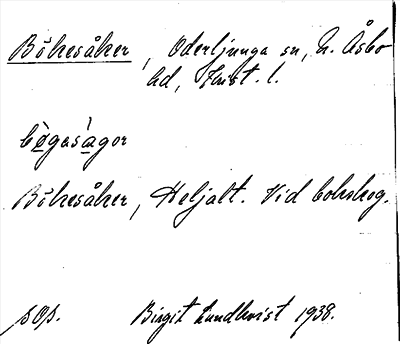 Bökesåker, Oderljunga sn, N. Åsbo
hd, Krist. l.
bø̀gəsàgər
Bökesåker, Heljalt. Vid bokskog.
sOs. Birgit Lundkvist 1938.